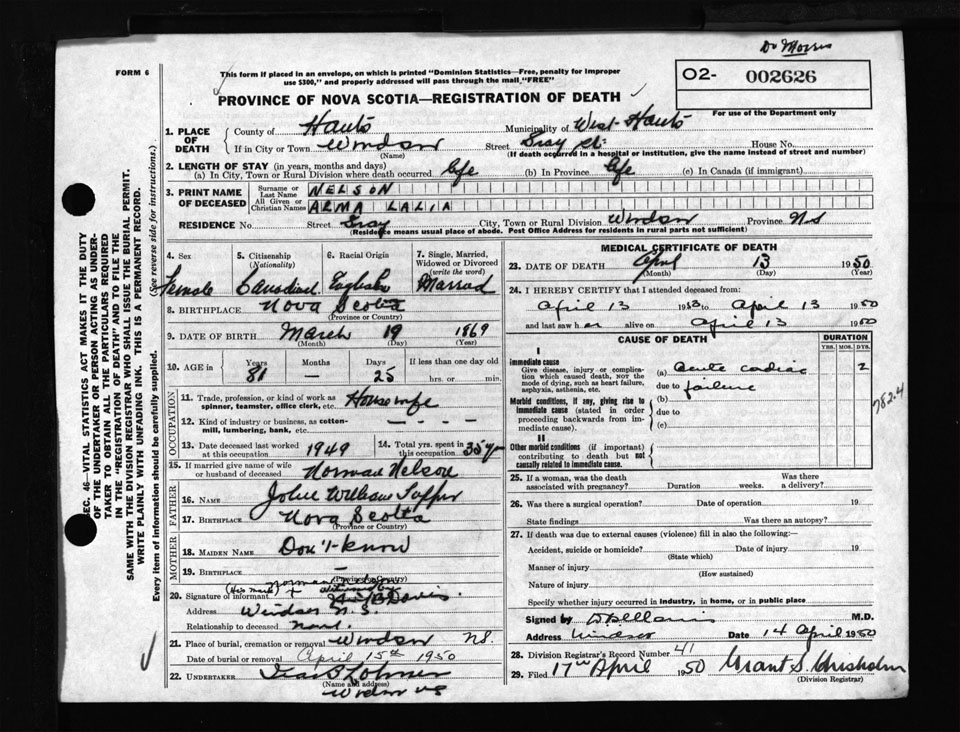 Dr Morris
FORM 6
This form if placed in an envelope, on which is printed "Dominion Statistics—Free, penalty for improper
use $300," and properly addressed will pass through the mail "FREE"
O2- 002626
PROVINCE OF NOVA SCOTIA—REGISTRATION OF DEATH
For use of the Department only
1. PLACE OF DEATH
County of Hants Municipality of West Hants
If in City or Town Windsor Street Gray St. House No.
(Name) (If death occurred in a hospital or institution, give the name instead of street and number)
2. LENGTH OF STAY (in years, months and days)
(a) In City, Town or Rural Division where death occurred life (b) In Province life (c) In Canada (if immigrant)
3. PRINT NAME OF DECEASED
Surname or Last Name NELSON
All Given or Christian Names ALMA LALIA
RESIDENCE No. Street Gray City, Town or Rural Division Windsor Province N S
(Residence means usual place of abode. Post Office Address for residents in rural parts not sufficient)
SEC. 46—VITAL STATISTICS ACT MAKES IT THE DUTY
OF THE UNDERTAKER OR PERSON ACTING AS UNDER-
TAKER TO OBTAIN ALL THE PARTICULARS REQUIRED
IN THE "REGISTRATION OF DEATH" AND TO FILE THE
SAME WITH THE DIVISION REGISTRAR WHO SHALL ISSUE THE BURIAL PERMIT.
WRITE PLAINLY WITH UNFADING INK. THIS IS A PERMANENT RECORD.
Every item of information should be carefully supplied. (See reverse side for instructions.)
4. Sex 5. Citizenship (Nationality) 6. Racial Origin 7. Single, Married, Widowed or Divorced (write the word)
Female Canadian English Married
8. BIRTHPLACE Nova Scotia
(Province or Country)
9. DATE OF BIRTH March 19 1869
(Month) (Day) (Year)
10. AGE in Years Months Days If less than one day old
81 — 25 hrs. or min.
OCCUPATION
11. Trade, profession, or kind of work as spinner, teamster, office clerk, etc. Housewife
12. Kind of industry or business, as cotton-mill, lumbering, bank, etc. — — — —
13. Date deceased last worked at this occupation 1949 14. Total yrs. spent in this occupation 35 yr
15. If married give name of wife or husband of deceased Norman Nelson
FATHER
16. NAME John William
17. BIRTHPLACE Nova Scotia
(Province or Country)
MOTHER
18. MAIDEN NAME Don't-know
19. BIRTHPLACE —
(Province or Country)
20. Signature of informant (His mark) + Norman B Davis
Address Windsor N. S.
Relationship to deceased
21. Place of burial, cremation or removal Windsor N.S.
Date of burial or removal April 15th 1950
22. UNDERTAKER
(Name and address)
Windsor NS
MEDICAL CERTIFICATE OF DEATH
23. DATE OF DEATH April 13 1950
(Month) (Day) (Year)
24. I HEREBY CERTIFY that I attended deceased from:
April 13 to April 13 1950
and last saw her alive on April 13 1950
CAUSE OF DEATH DURATION
YRS. MOS. DYS.
I
immediate cause
Give disease, injury or complication which caused death, NOT the mode of dying, such as heart failure, asphyxia, asthenia, etc.
(a) Acute cardiac 2
due to failure
Morbid conditions, if any, giving rise to immediate cause (stated in order proceeding backwards from immediate cause).
(b)
due to
(c)
782.4
II
Other morbid conditions (if important) contributing to death but not causally related to immediate cause.
25. If a woman, was the death associated with pregnancy? Duration weeks. Was there a delivery?
26. Was there a surgical operation? Date of operation 19
State findings Was there an autopsy?
27. If death was due to external causes (violence) fill in also the following:—
Accident, suicide or homicide? Date of injury 19
(State which)
Manner of injury
(How sustained)
Nature of injury
Specify whether injury occurred in industry, in home, or in public place
Signed by M.D.
Address Windsor Date 14 April 1950
28. Division Registrar's Record Number 41
29. Filed 17th April 1950 Grant S. Chisholm
(Division Registrar)